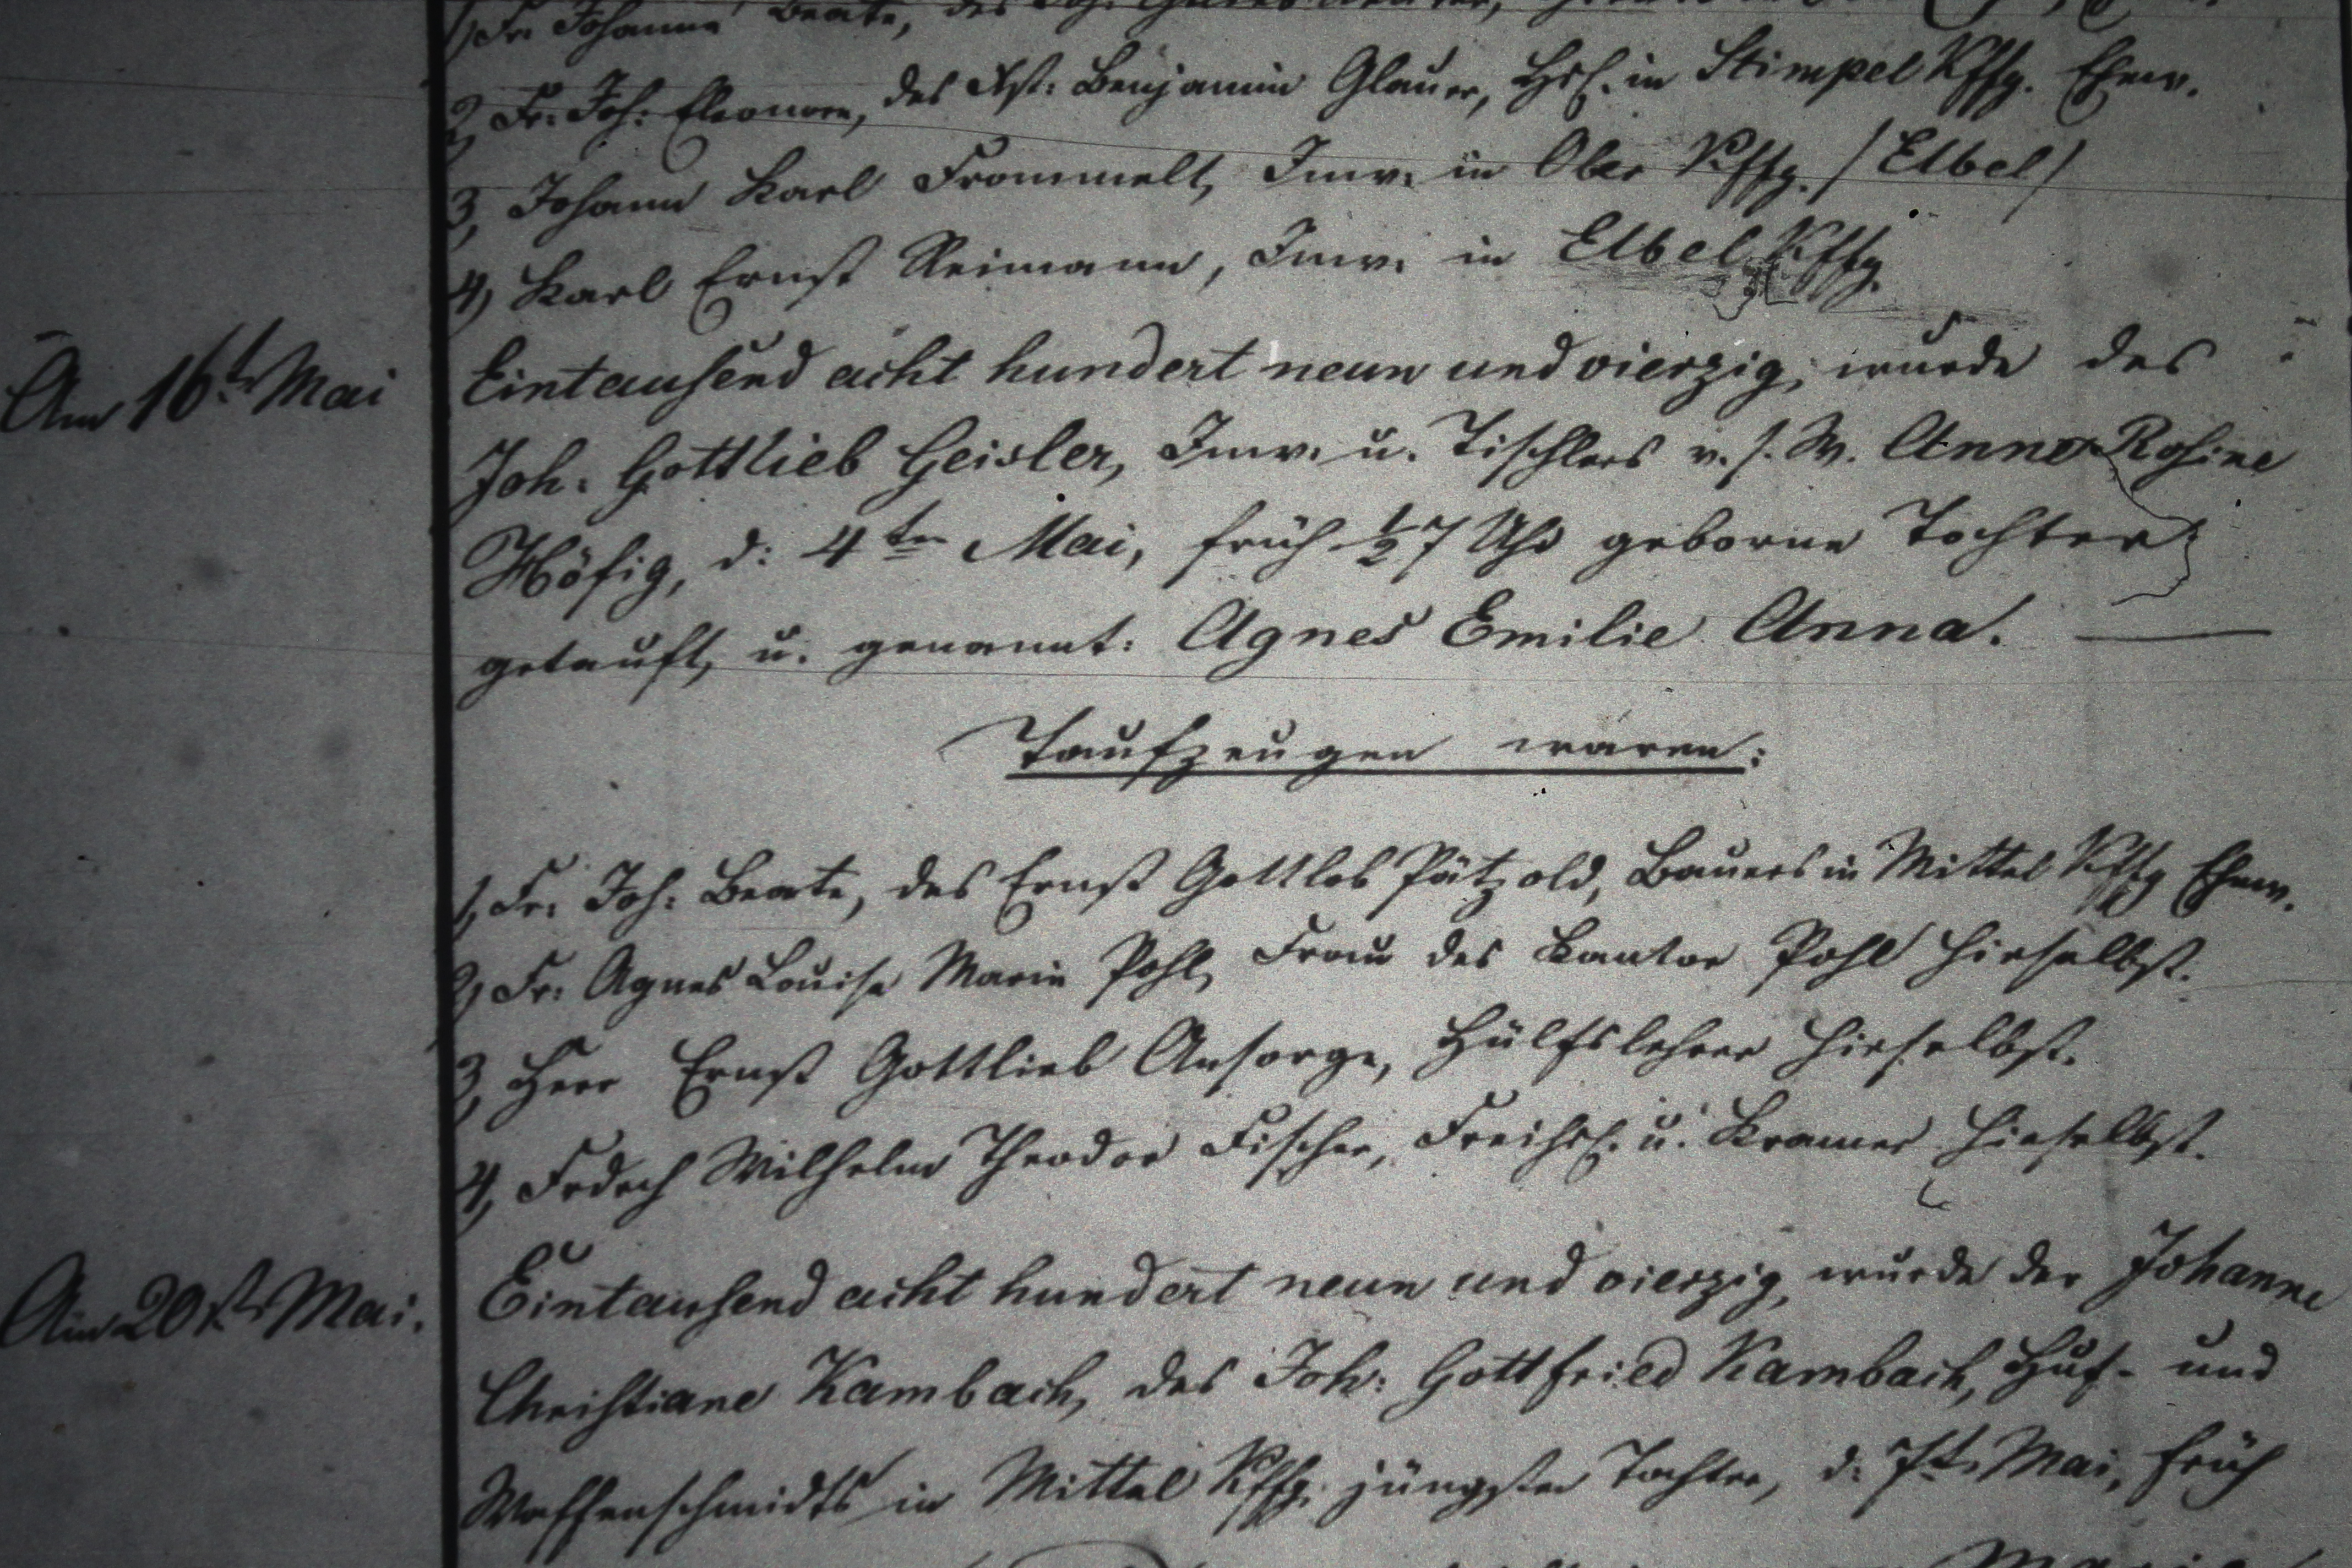 1, Fr. Johanne Beate, des Joh.
2, Fr. Joh: Eleonore, des Benjamin Glauer, Hsl. in Stimpel Kffg. Ehew.
3, Johann Karl Frommelt, Inw. in Ober Kffg. /Elbel/
4, Karl Ernst Reimann, Inw. in Elbel Kffg.
Am 16t. Mai Eintausend acht hundert neun und vierzig, wurde des
Joh. Gottlieb Geisler, Inw. u. Tischlers v. s. W. Anna Rosine
Höfig, d: 4ten Mai, früh ½7 Uhr geborne Tochter
getauft, u. genannt: Agnes Emilie Anna. —
Taufzeugen waren:
1, Fr. Joh: Beate, des Ernst Gottlob Pätzold, Bauers in Mittel Kffg Ehew.
2, Fr: Agnes Louise Marie Pohl, Frau des Kantor Pohl hieselbst.
3, Herr Ernst Gottlieb Ansorge, Hülfslehrer hieselbst.
4, Fredrch Wilhelm Theodor Fischer, Freihsl. u. Kramer hieselbst.
Am 20st. Mai. Eintausend acht hundert neun und vierzig, wurde der Johanne
Christiane Kambach, des Joh: Gottfried Kambach, Huf- und
Waffenschmidts in Mittel Kffg. jüngsten Tochter, d: 7t. Mai, früh